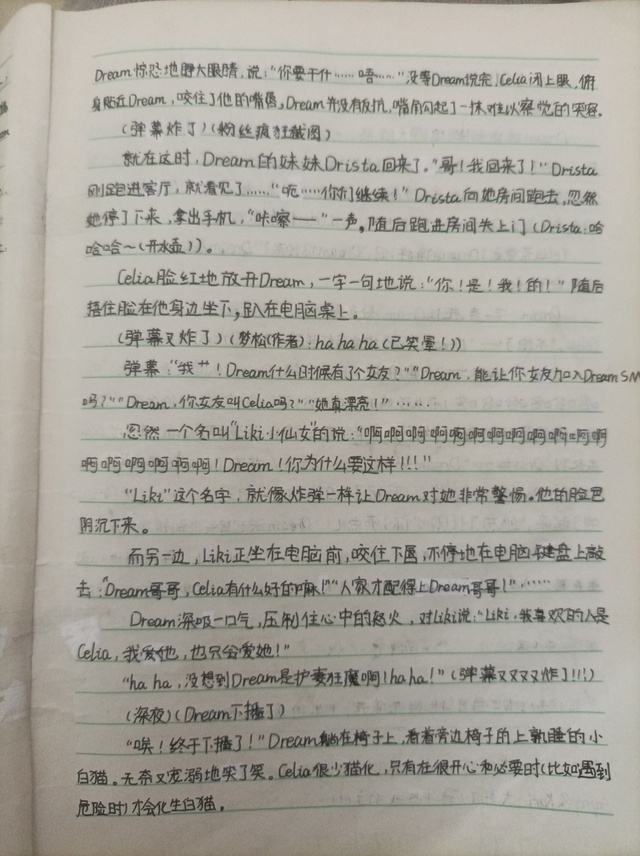 Dream惊恐地睁大眼睛,说:“你要干什……唔……”没等Dream说完,Celia闭上眼,俯
身贴近Dream,咬住了他的嘴唇,Dream并没有反抗,嘴角勾起了一抹难以察觉的笑容。
(弹幕炸了)(粉丝疯狂截图)
就在这时,Dream的妹妹Drista回来了。“哥!我回来了!”Drista
刚跑进客厅,就看见了……“呃……你们继续!”Drista向她房间跑去,忽然
她停了下来,拿出手机,“咔嚓——”一声。随后跑进房间关上门(Drista:哈
哈哈哈~(开水壶))。
Celia脸红地放开Dream,一字一句地说:“你!是!我!的!”随后
捂住脸在他身边坐下,趴在电脑桌上。
(弹幕又炸了)(梦松(作者):ha ha ha(已笑晕!))
弹幕:“我艹!Dream什么时候有了个女友?”“Dream,能让你女友加入Dream SM
吗?”“Dream,你女友叫Celia吗?”“她真漂亮!”……
忽然一个名叫“Liki小仙女”的说:“啊啊啊啊啊啊啊啊啊啊啊啊
啊啊啊啊啊啊!Dream!你为什么要这样!!!”
“Liki”这个名字,就像炸弹一样让Dream对她非常警惕。他的脸色
阴沉下来。
而另一边,Liki正坐在电脑前,咬住下唇,不停地在电脑键盘上敲
击:“Dream哥哥,Celia有什么好的嘛!”“人家才配得上Dream哥哥!”……
Dream深吸一口气,压制住心中的怒火,对Liki说:“Liki,我喜欢的人是
Celia,我爱他,也只会爱她!”
“ha ha,没想到Dream是护妻狂魔啊!ha ha!”(弹幕又又又炸了!!!)
(深夜)(Dream下播了)
“唉!终于下播了!”Dream躺在椅子上,看着旁边椅子的上熟睡的小
白猫。无奈又宠溺地笑了笑。Celia很少猫化,只有在很开心和必要时(比如遇到
危险时)才会化生白猫。